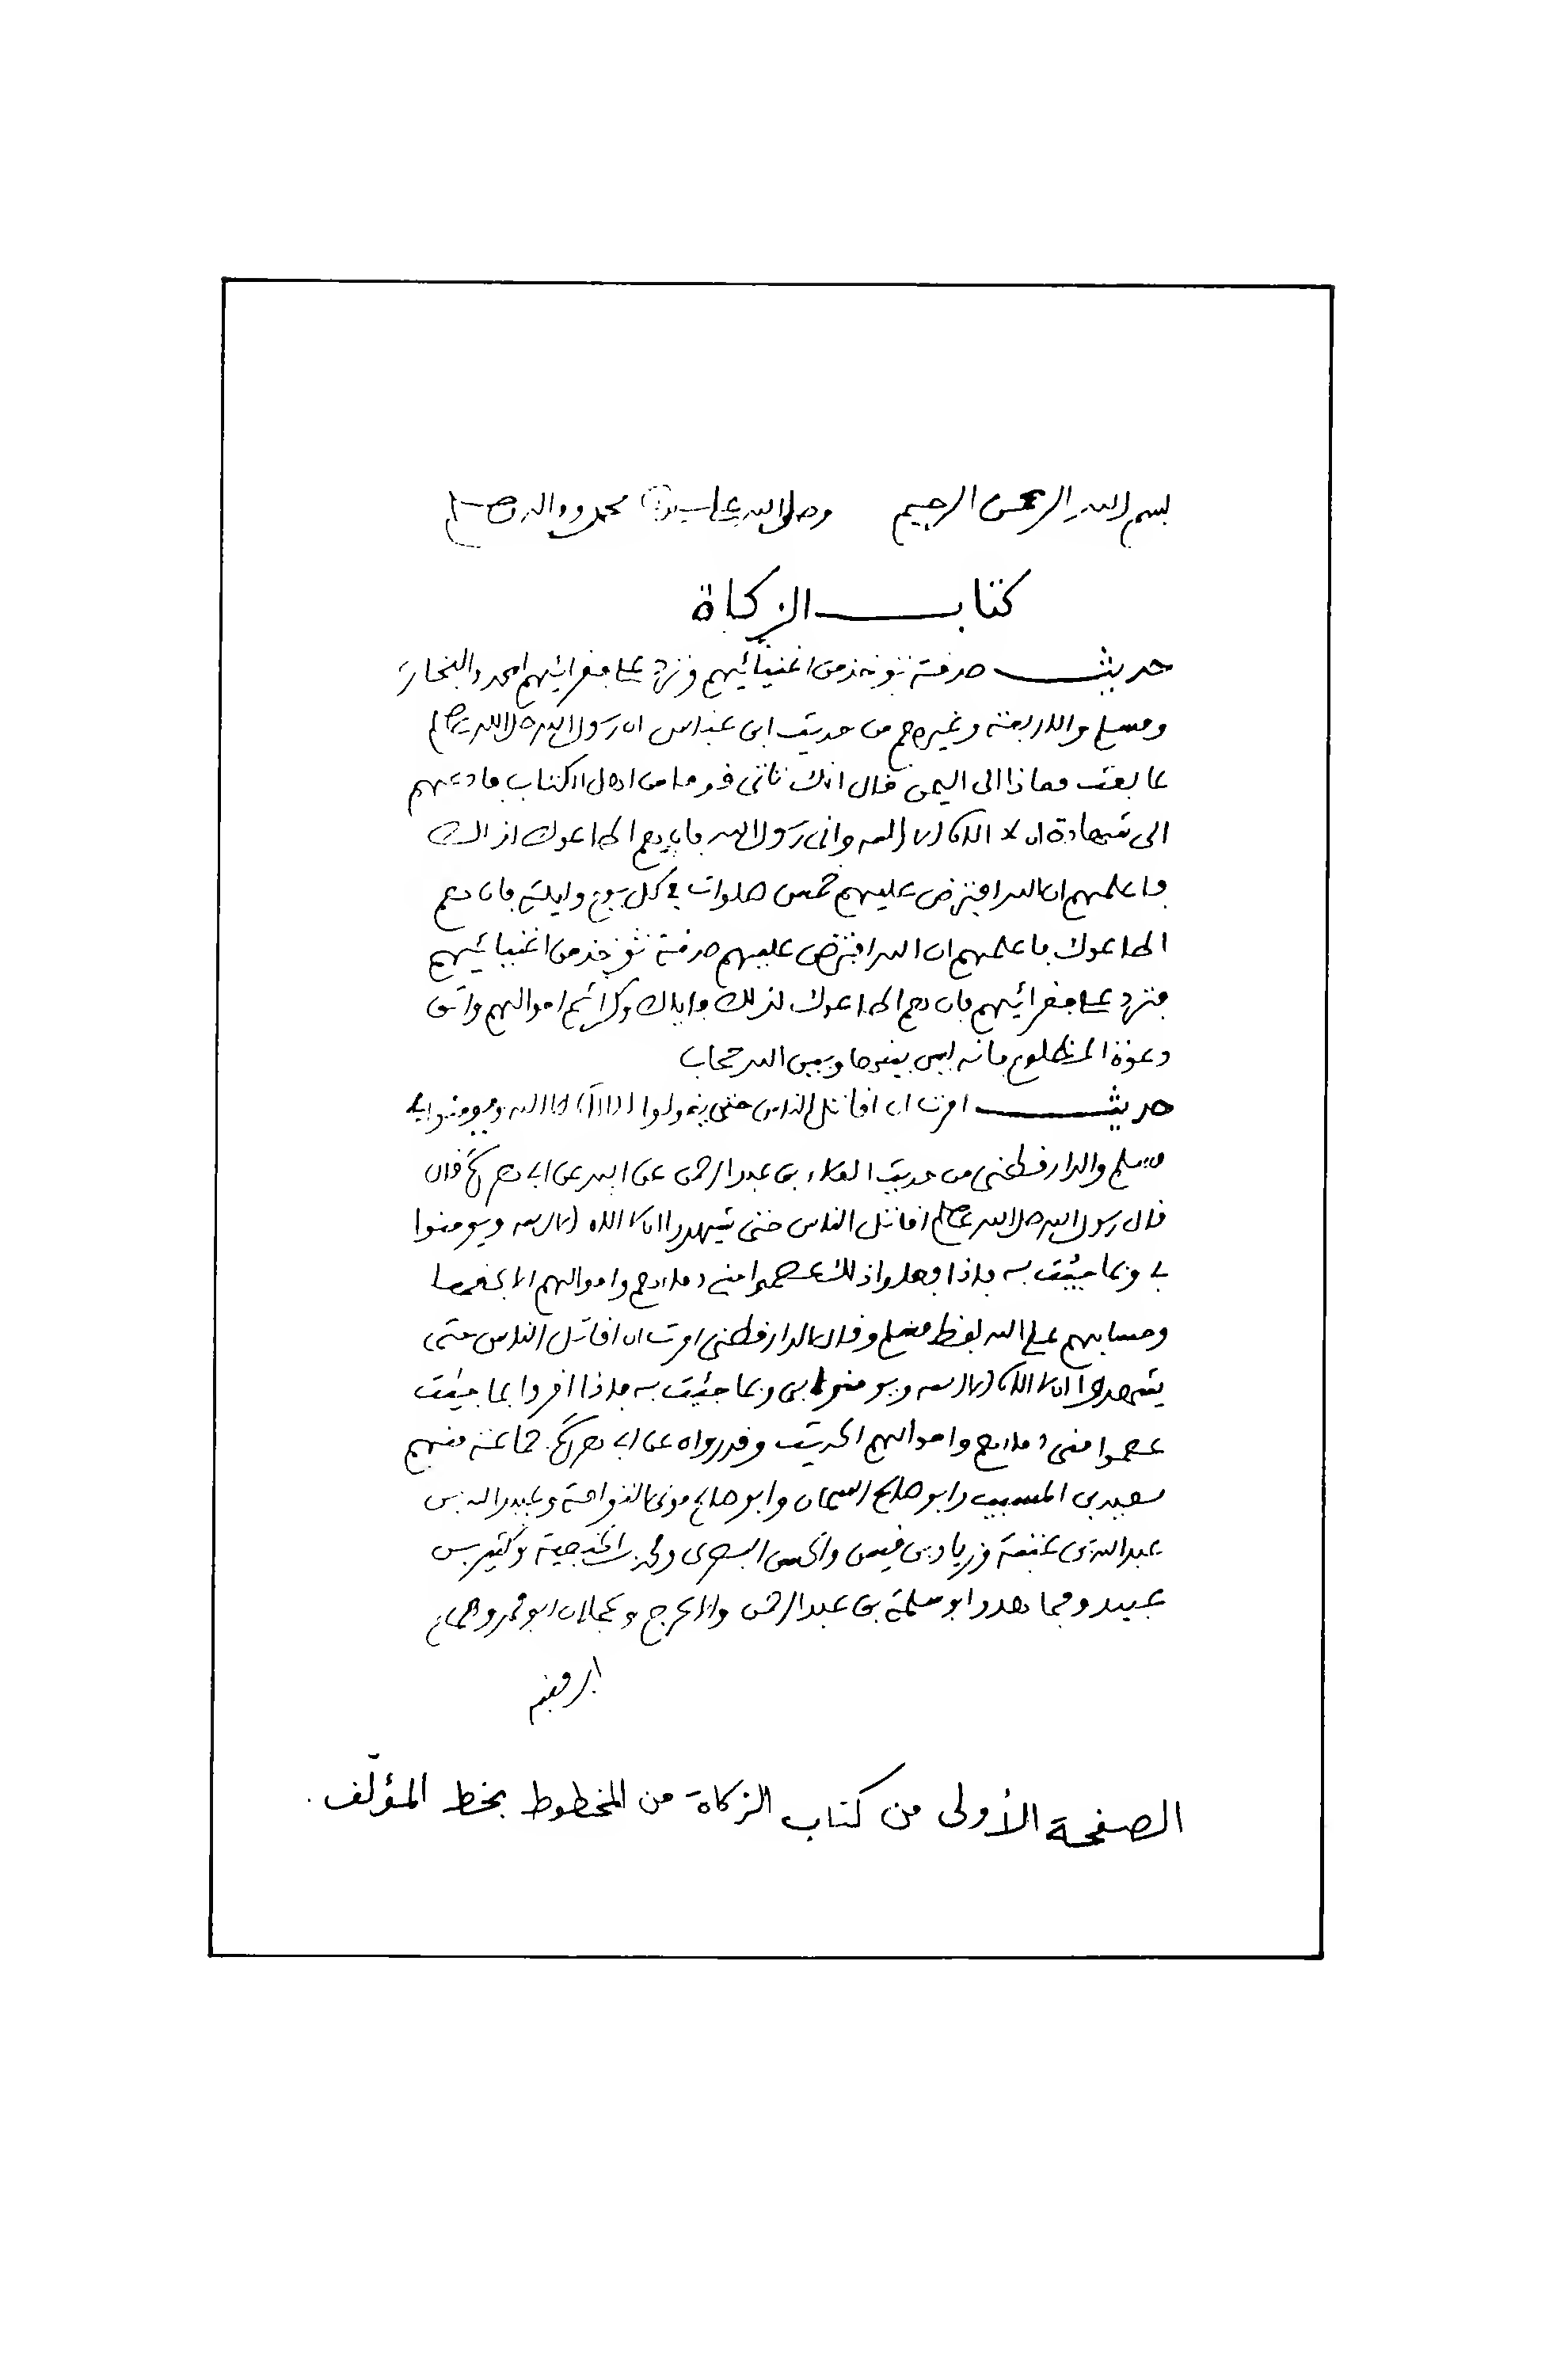 بسم الله الرحمن الرحيم وصلى الله على سيدنا محمد وءاله وصحبه وسلم
كتاب الزكاة
حديث صدقة تؤخذ من اغنيائهم وترد على فقرائهم احمد والبخارى
ومسلم والاربعة وغيرهم من حديث ابن عباس ان رسول الله صلى الله عليه وسلم
لما بعث معاذا الى اليمن قال انك تاتى قوما من اهل الكتاب فادعهم
الى شهادة ان لا الاه الا الله وانى رسول الله فان هم اطاعوك لذالك
فاعلمهم ان الله افترض عليهم خمس صلوات في كل يوم وليلة فان هم
اطاعوك فاعلمهم ان الله افترض عليهم صدقة تؤخذ من اغنيائهم
فترد على فقرائهم فان هم اطاعوك لذلك فاياك وكرائم اموالهم واتق
دعوة المظلوم فانه ليس بينها وبين الله حجاب
حديث امرت ان اقاتل الناس حتى يقولوا لا الاه الا الله ويومنوا بى
مسلم والدارقطنى من حديث العلاء بن عبد الرحمن عن ابيه عن ابى هريرة قال
قال رسول الله صلى الله عليه وسلم اقاتل الناس حتى يشهدوا ان لا الاه الا الله ويومنوا
بى وبما جئت به فاذا فعلوا ذلك عصموا منى دماءهم واموالهم الا بحقها
وحسابهم على الله لفظ مسلم وقال الدارقطنى امرت ان اقاتل الناس حتى
يشهدوا ان لا الاه الا الله ويومنوا بى وبما جئت به فاذا اقروا بما جئت
عصموا منى دماءهم واموالهم الحديث وقد رواه عن ابى هريرة جماعة منهم
سعيد بن المسيب وابو صالح السمان وابو صالح مولى التوامة وعبيد الله بن
عبد الله بن عتبة وزياد بن قيس والحسن البصرى و وكثير بن
عبيد ومجاهد وابو سلمة بن عبد الرحمن والاعرج وعجلان ابو محمد وهمام
ابن منبه
الصفحة الأولى من كتاب الزكاة من المخطوط بخط المؤلّف .